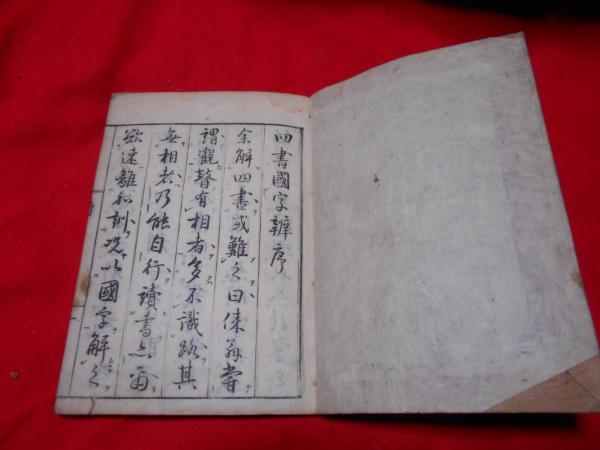 四書國字辨序
余解四書或難之曰徠翁嘗
謂觀瞽有相者多不識路其
無相者乃能自行讀書亦爾
欲遠離和訓況以國字解之
序